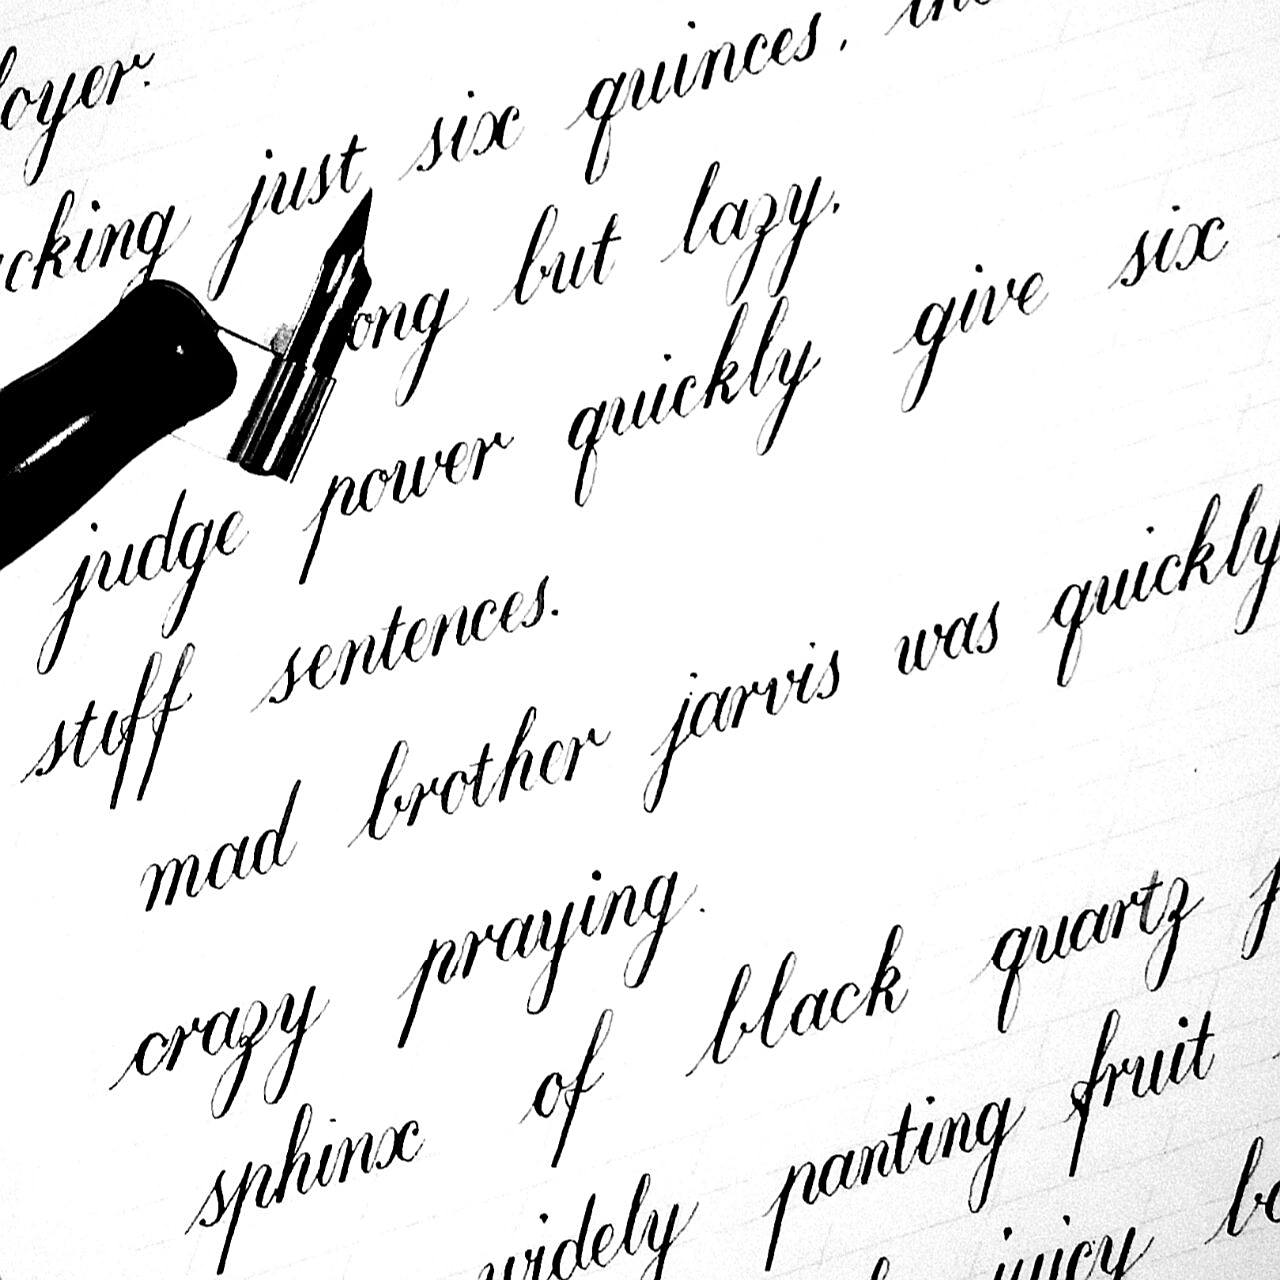 just six quinces,
but lazy.
judge power quickly give six
stiff sentences.
mad brother jarvis was quickly
crazy praying.
sphinx of black quartz
widely panting fruit
juicy